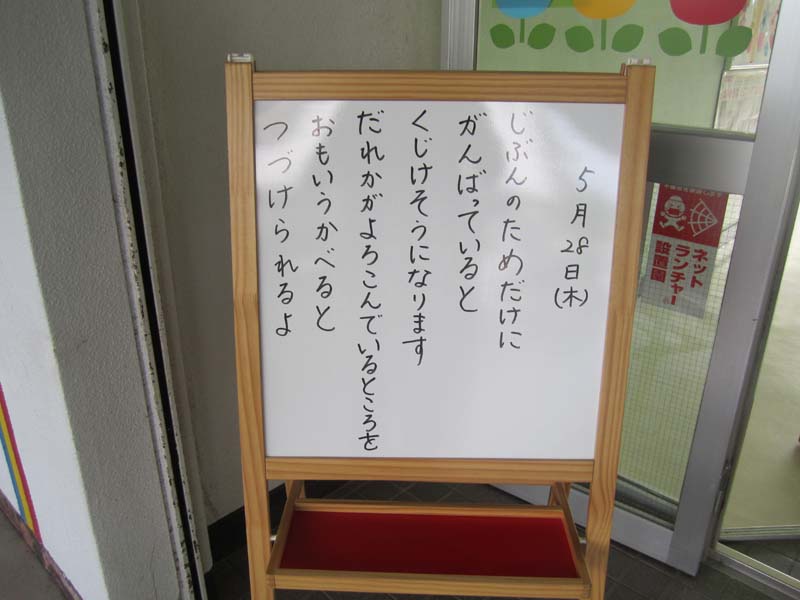 5月28日(木)
じぶんのためだけに
がんばっていると
くじけそうになります
だれかがよろこんでいるところを
おもいうかべると
つづけられるよ
ネット
ランチャー
設置園